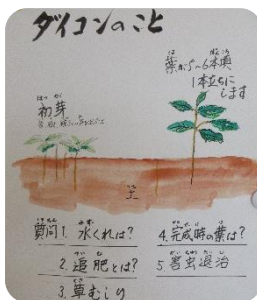 ダイコンのこと
葉が5～6本頃
1本立ちに
します
はつが
初芽
土
質問1. 水くれは?
2. 追肥とは?
3. 草むしり
4. 完成時の葉は?
5. 害虫退治